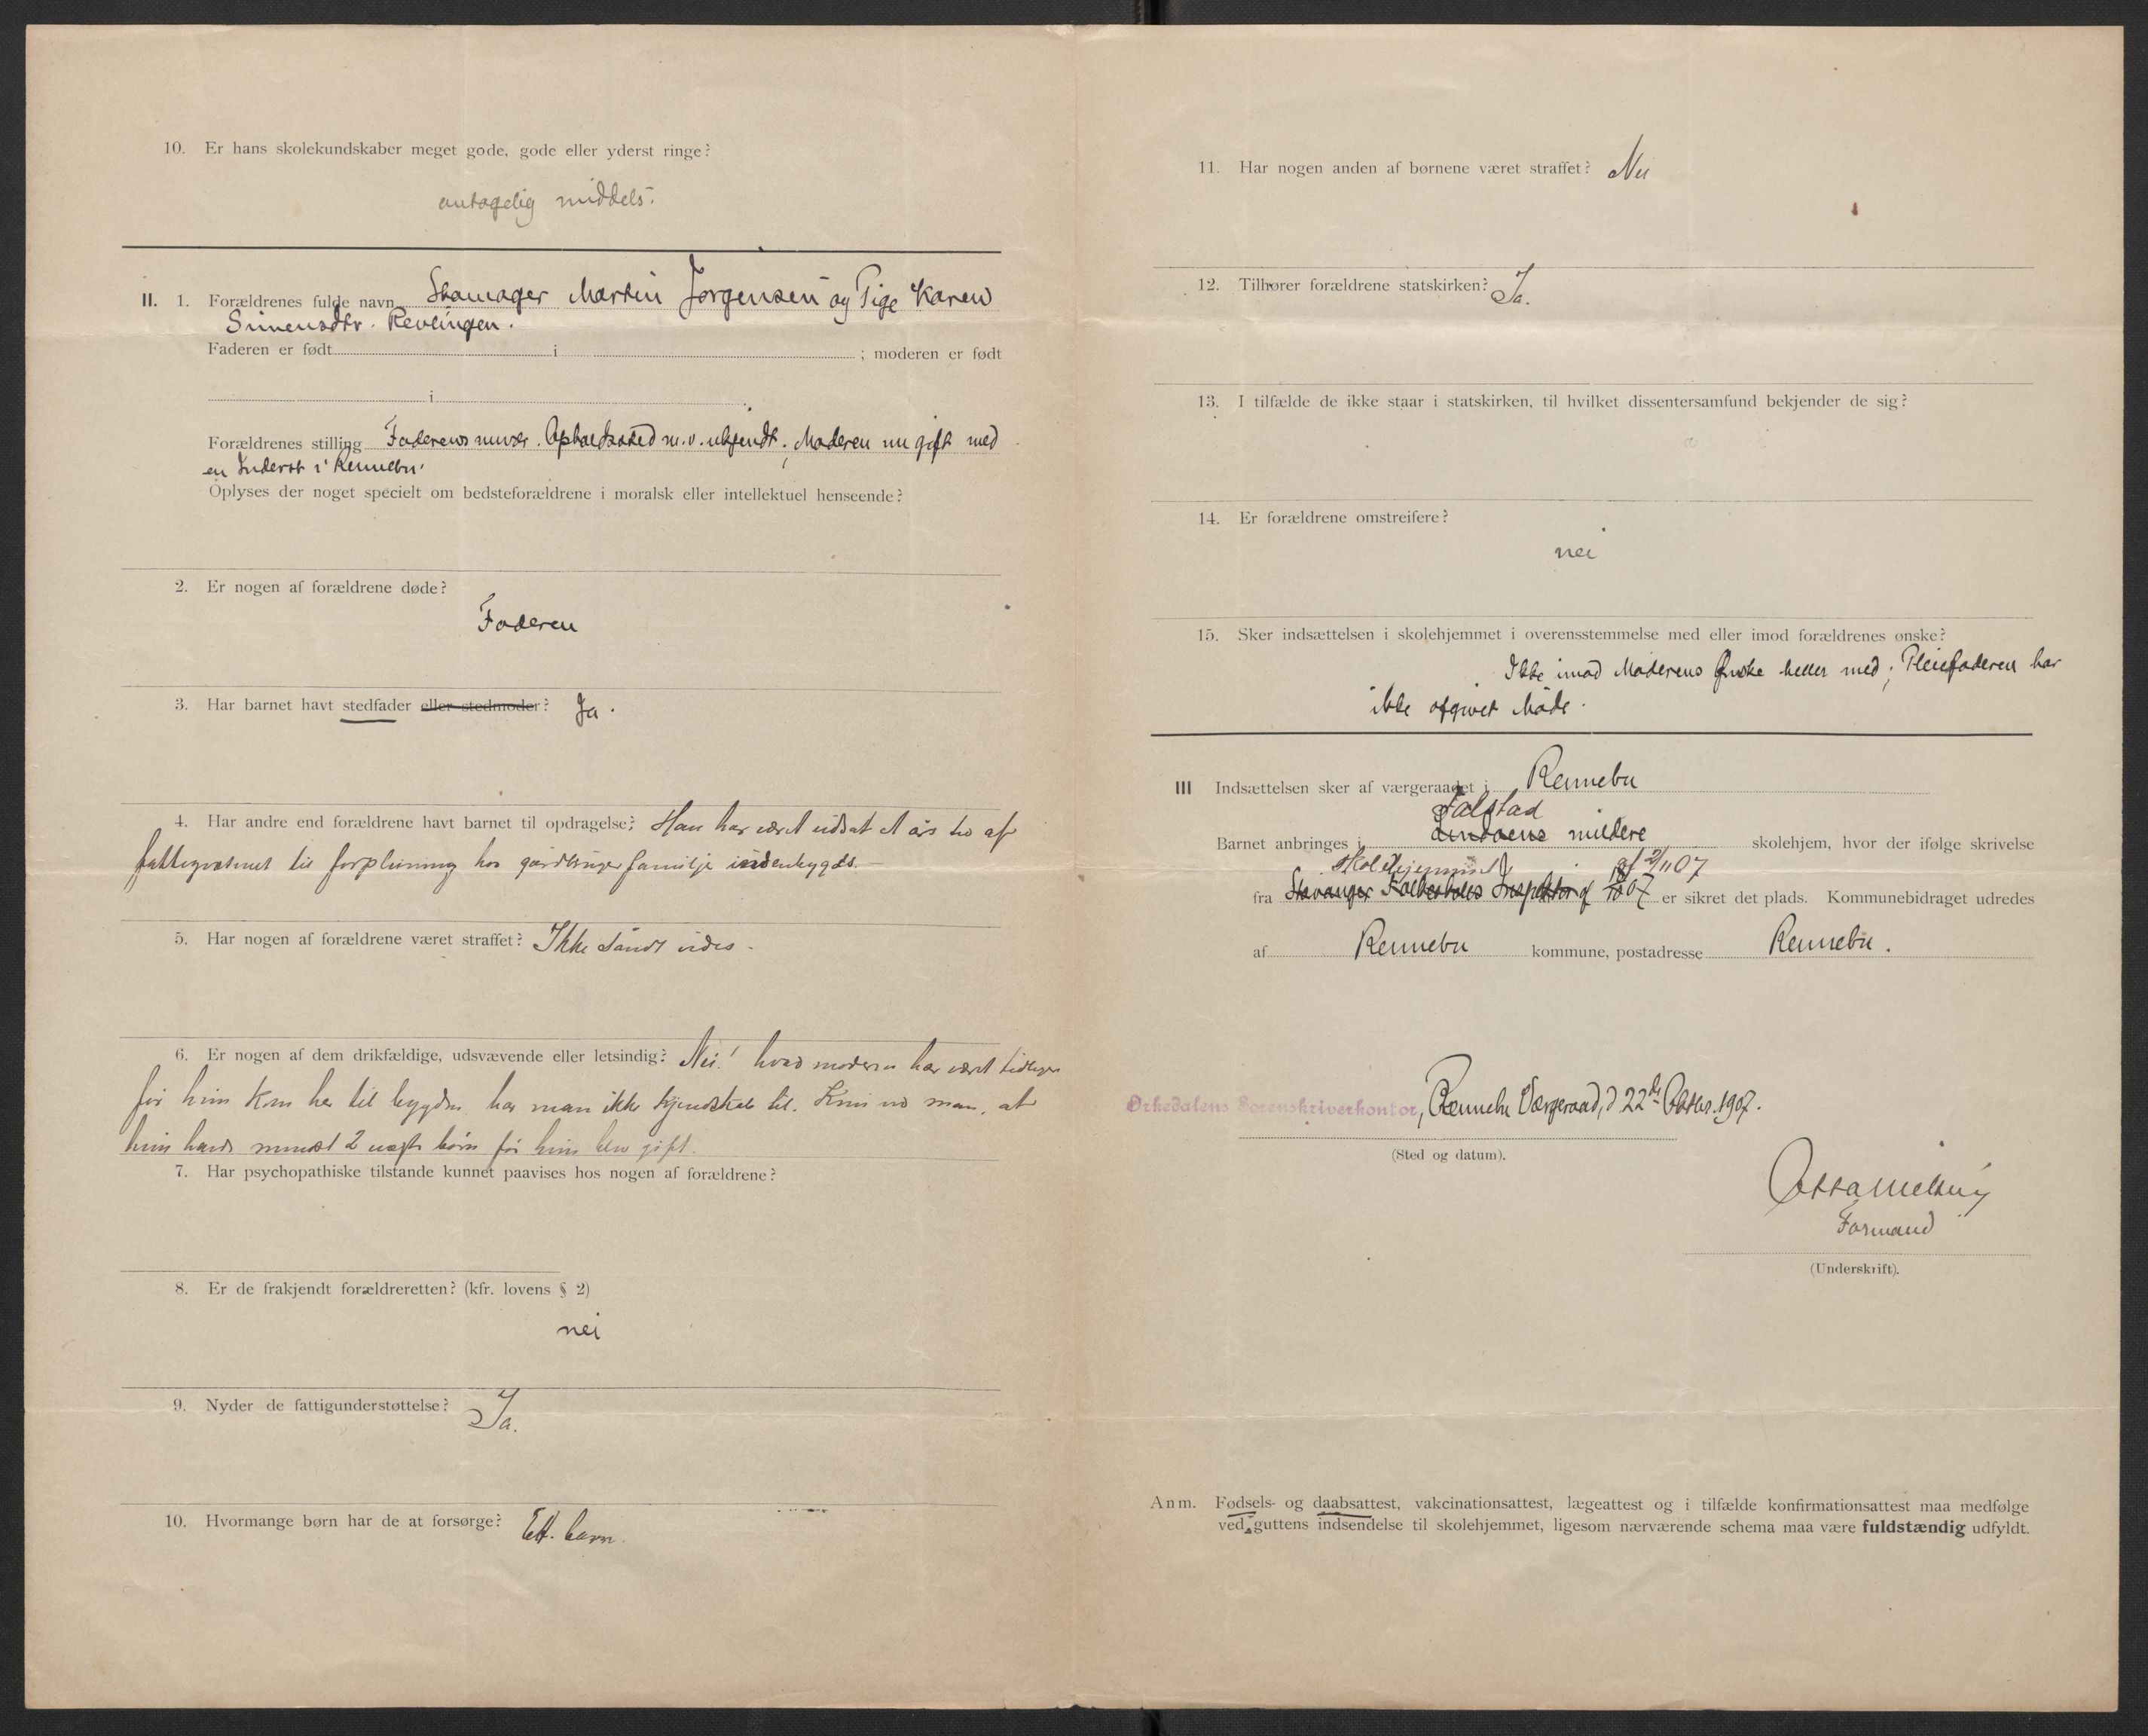 10. Er hans skolekundskaber meget gode, gode eller yderst ringe?
antagelig middels.
II. 1. Forældrenes fulde navn Skomager Martin Jørgensen og Pige Karen
Simensdtr. Revlingen.
Faderen er født i ; moderen er født
i
Forældrenes stilling Faderens nuvær. Opholdssted m.v. ukjendt; Moderen nu gift med
en Inderst i Rennebu.
Oplyses der noget specielt om bedsteforældrene i moralsk eller intellektuel henseende?
2. Er nogen af forældrene døde?
Faderen
3. Har barnet havt stedfader eller stedmoder? Ja.
4. Har andre end forældrene havt barnet til opdragelse? Han har været udsat et års tid af
fattigvæsenet til forpleining hos gårdbruger familje indenbygds.
5. Har nogen af forældrene været straffet? Ikke såvidt vides.
6. Er nogen af dem drikfældige, udsvævende eller letsindig? Nei! hvad moderen har været tidligere
før hun kom her til bygden har man ikke kjendskab til. Kun ved man, at
hun havde mindst 2 uægte børn før hun blev gift.
7. Har psychopathiske tilstande kunnet paavises hos nogen af forældrene?
8. Er de frakjendt forældreretten? (kfr. lovens § 2)
nei
9. Nyder de fattigunderstøttelse? Ja.
10. Hvormange børn har de at forsørge? Ett barn.
11. Har nogen anden af børnene været straffet? Nei
12. Tilhører forældrene statskirken? Ja.
13. I tilfælde de ikke staar i statskirken, til hvilket dissentersamfund bekjender de sig?
14. Er forældrene omstreifere?
nei
15. Sker indsættelsen i skolehjemmet i overensstemmelse med eller imod forældrenes ønske?
Ikke imod Moderens Ønske heller med; Pleiefaderen har
ikke afgivet Møde.
III Indsættelsen sker af værgeraadet i Rennebu
Falstad
Barnet anbringes i Lindøens mildere skolehjem, hvor der ifølge skrivelse
Skolehjemmet af 2/11 07
fra Stavanger Folkeskoles Inspektør af 07 er sikret det plads. Kommunebidraget udredes
af Rennebu kommune, postadresse Rennebu.
Orkedalens Sorenskriverkontor, Rennebu Værgeraad, d 22de Oktbr. 1907.
(Sted og datum).
Formand
(Underskrift).
Anm. Fødsels- og daabsattest, vakcinationsattest, lægeattest og i tilfælde konfirmationsattest maa medfølge
ved guttens indsendelse til skolehjemmet, ligesom nærværende schema maa være fuldstændig udfyldt.